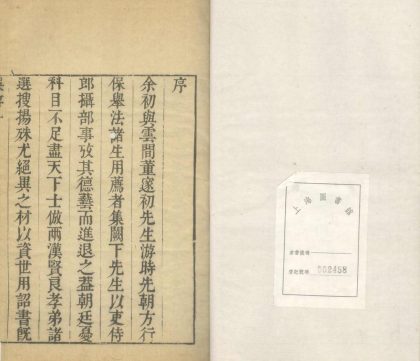 序
余初與雲間董邃初先生游時先朝方行
保舉法諸生用薦者集闕下先生以吏侍
郎攝部事攷其德藝而進退之蓋朝廷憂
科目不足盡天下士倣兩漢賢良孝弟諸
選搜揚殊尤絕異之材以資世用詔書旣
上海圖書館
登記號碼 002458